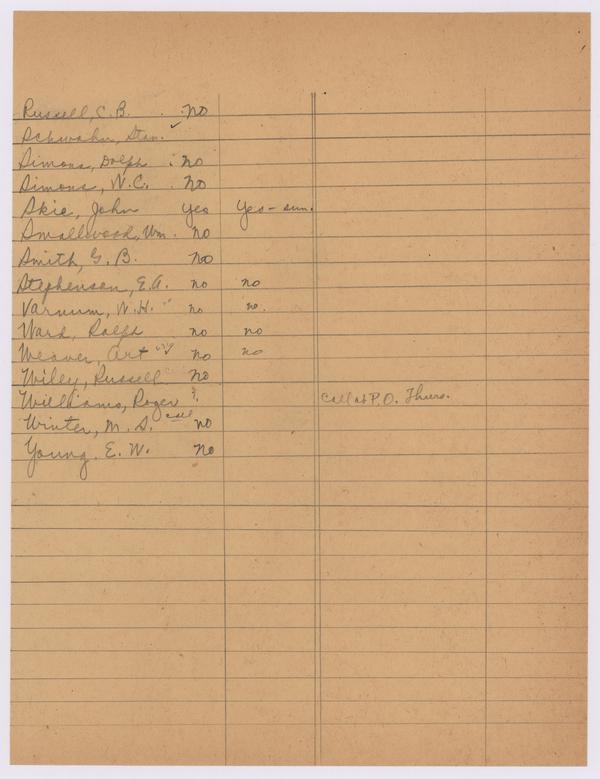 Russell, C. B. no
Schwahn, Stan. ✓
Simons, Dolph no
Simons, W. C. no
Skie, John Yes Yes - sun.
Smallwood, Wm. no
Smith, G. B. No
Stephenson, E. A. no no
Varnum, W. H. " no no.
Ward, Ralph no no
Weaver, Art no no
Wiley, Russell No
Williams, Roger ?. Call at P.O. Thurs.
Winter, M. S. call no
Young, E. W. No